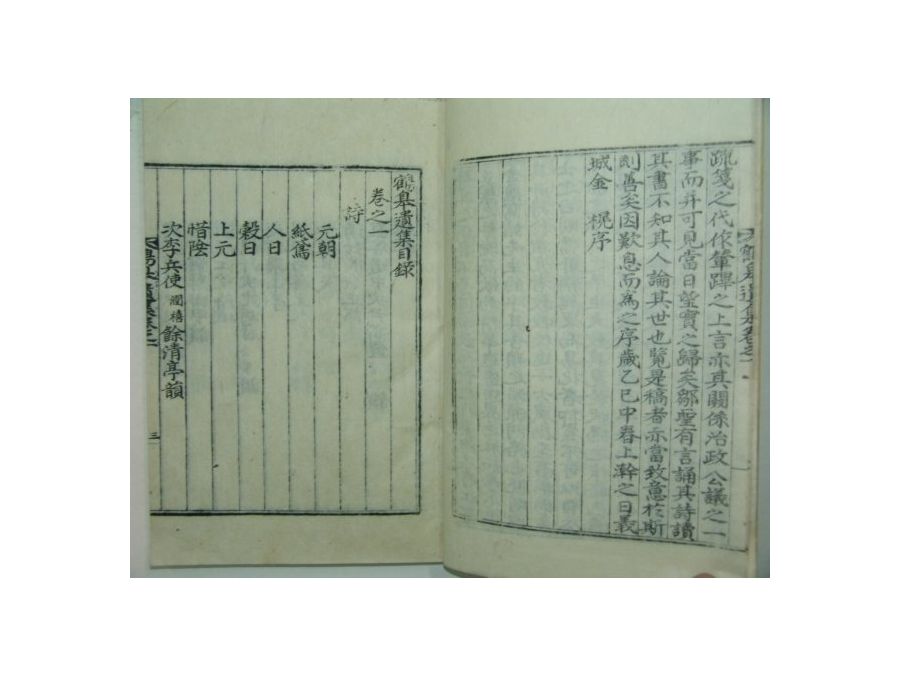 疏箋之代作輦蹕之上言亦其關係治政公議之一
事而并可見當日望實之歸矣鄒聖有言誦其詩讀
其書不知其人論其世也覽是稿者亦當致意於斯
則善矣因歎息而爲之序歲乙巳中春上澣之日義
城金 榥序
鶴皐遺集目錄
卷之一
詩
元朝
紙鳶
人日
穀日
上元
惜陰
次李兵使 潤禧 餘清亭韻
三